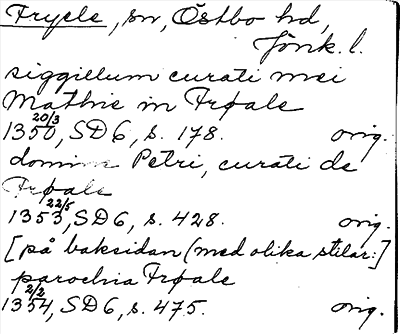 Fryele, sn, Östbo hd,
Jönk. l.
siggillum curati mei
Mathie in Frøale
20/3
1350, SD 6, s. 178. orig.
domini Petri, curati de
Frøale
22/5
1353, SD 6, s. 428. orig.
[på baksidan (med olika stilar:]
parochia Frøale
2/2
1354, SD 6, s. 475. orig.